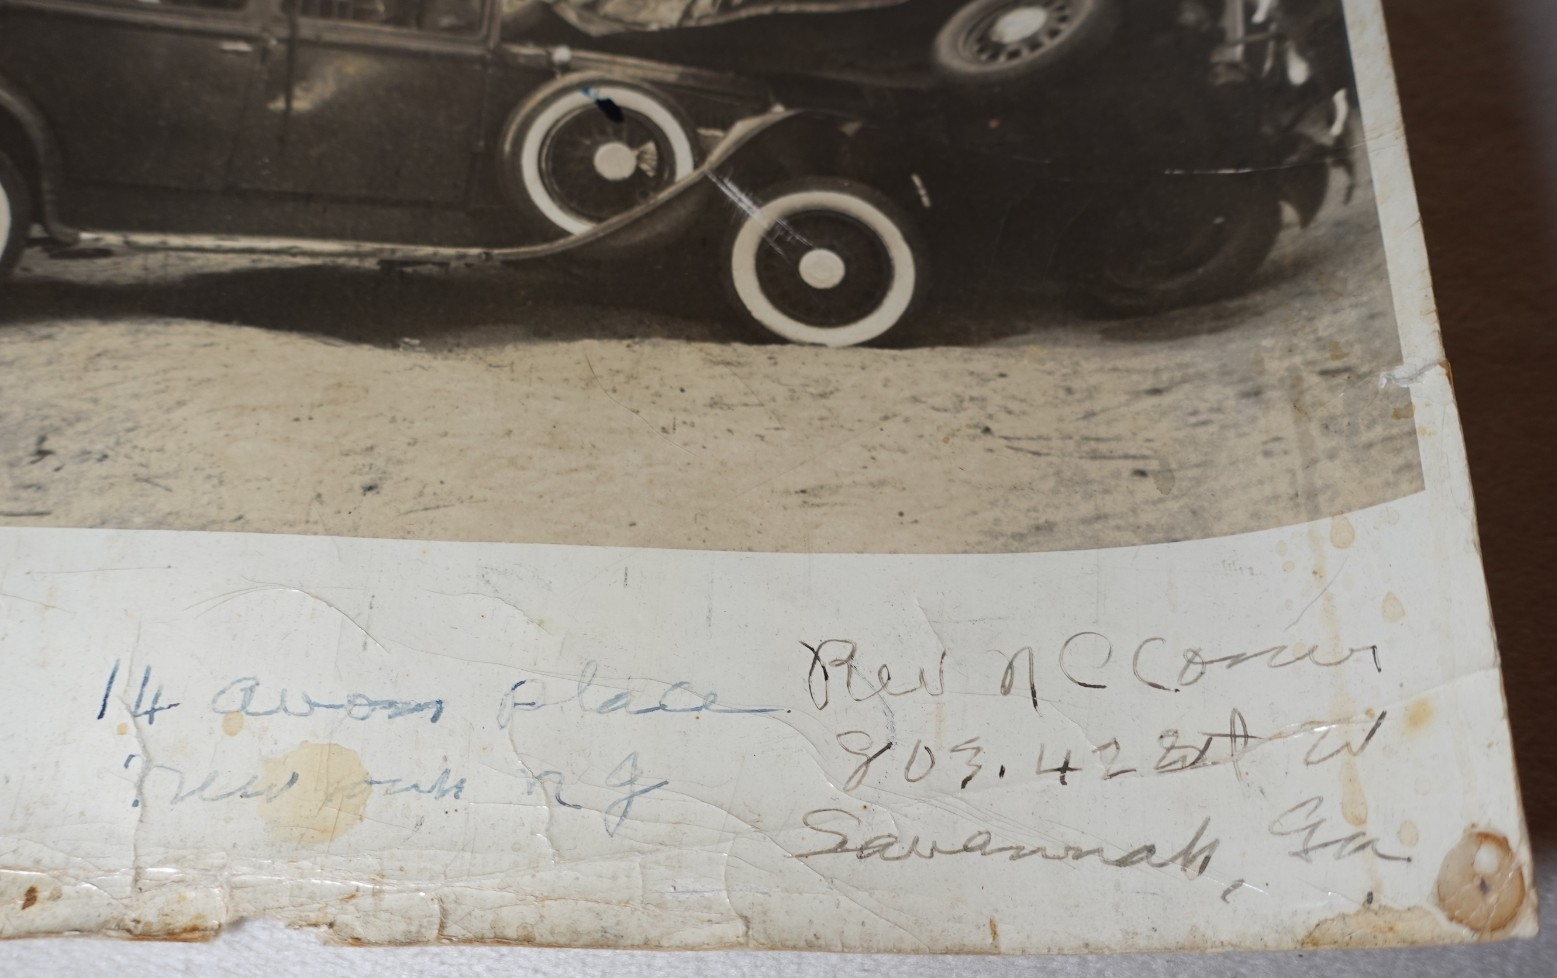 14 avon place
Newark n J
Rev N C Conner
803. 42 St W
Savannah, Ga